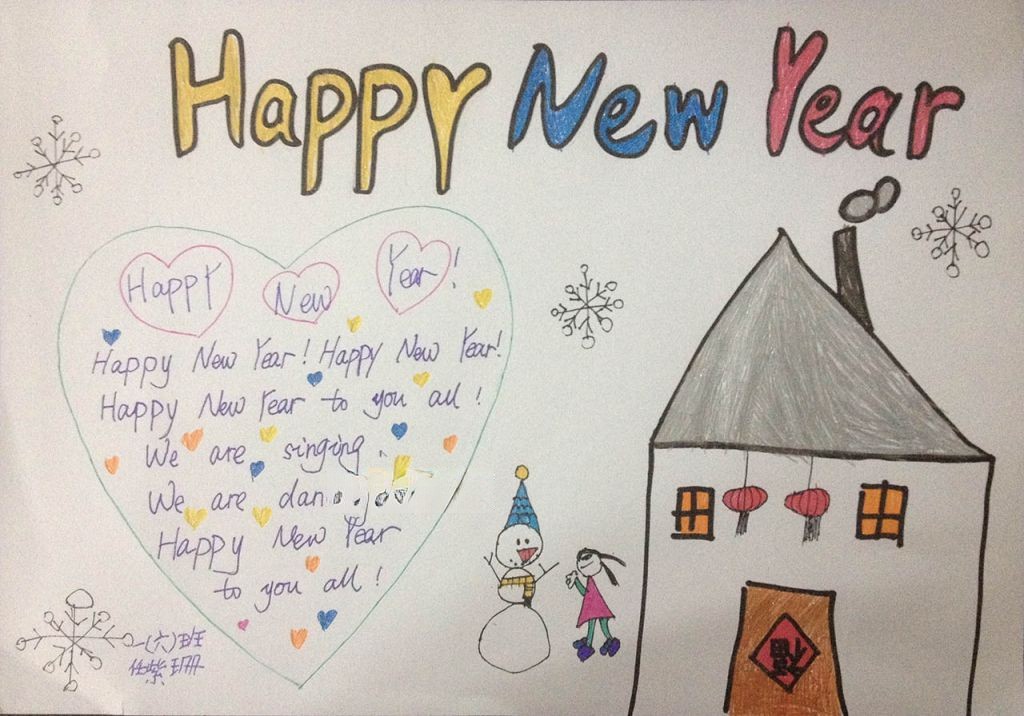 Happy New Year
Happy New Year!
Happy New Year! Happy New Year!
Happy New Year to you all!
We are singing.
We are
Happy New Year
to you all!
一(六)班
任紫珊
福